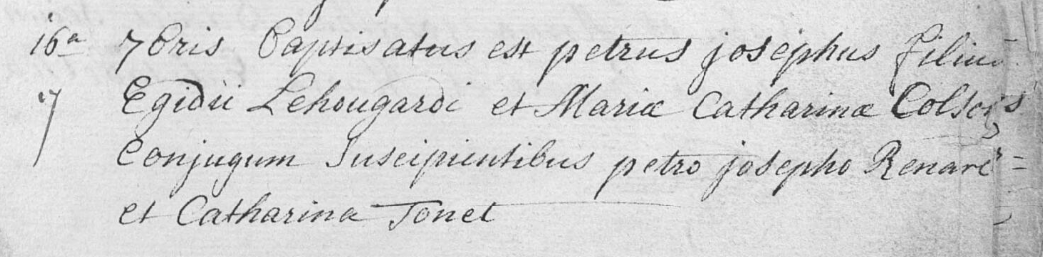 16a 7bris Baptisatus est petrus josephus filius
17 Egidii Lehougardi et Mariæ Catharinæ Colson
Conjugum Suscipientibus petro josepho Renard =
et Catharina Tonet